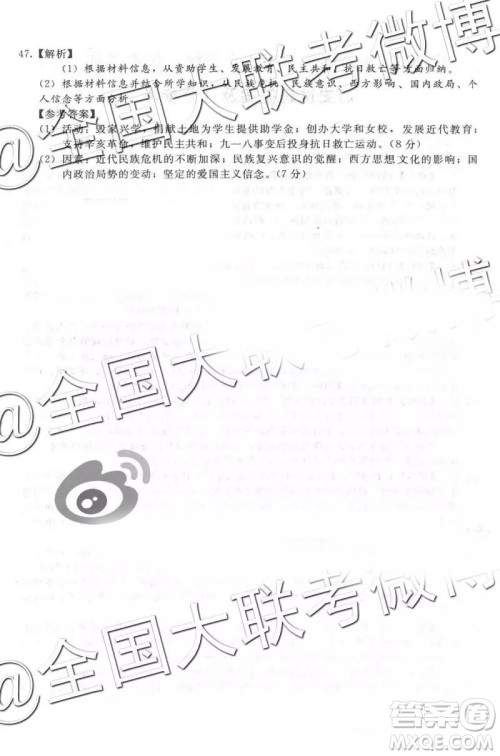 47.【解析】
(1) 根据材料信息，从资助学生、发展教育、民主共和、抗日救亡等方面归纳。
(2) 根据材料信息并结合所学知识，从民族危机、民族意识、西方影响、国内政局、个
人信念等方面分析。
【参考答案】
(1) 活动：毁家兴学，捐献土地为学生提供助学金；创办大学和女校，发展近代教育；
支持辛亥革命，维护民主共和；九一八事变后投身抗日救亡运动。(8 分)
(2) 因素：近代民族危机的不断加深；民族复兴意识的觉醒；西方思想文化的影响；国
内政治局势的变动；坚定的爱国主义信念。(7 分)
@全国大联考微博
@全国大联考微博
@全国大联考微博
答案圈
MXQE.COM